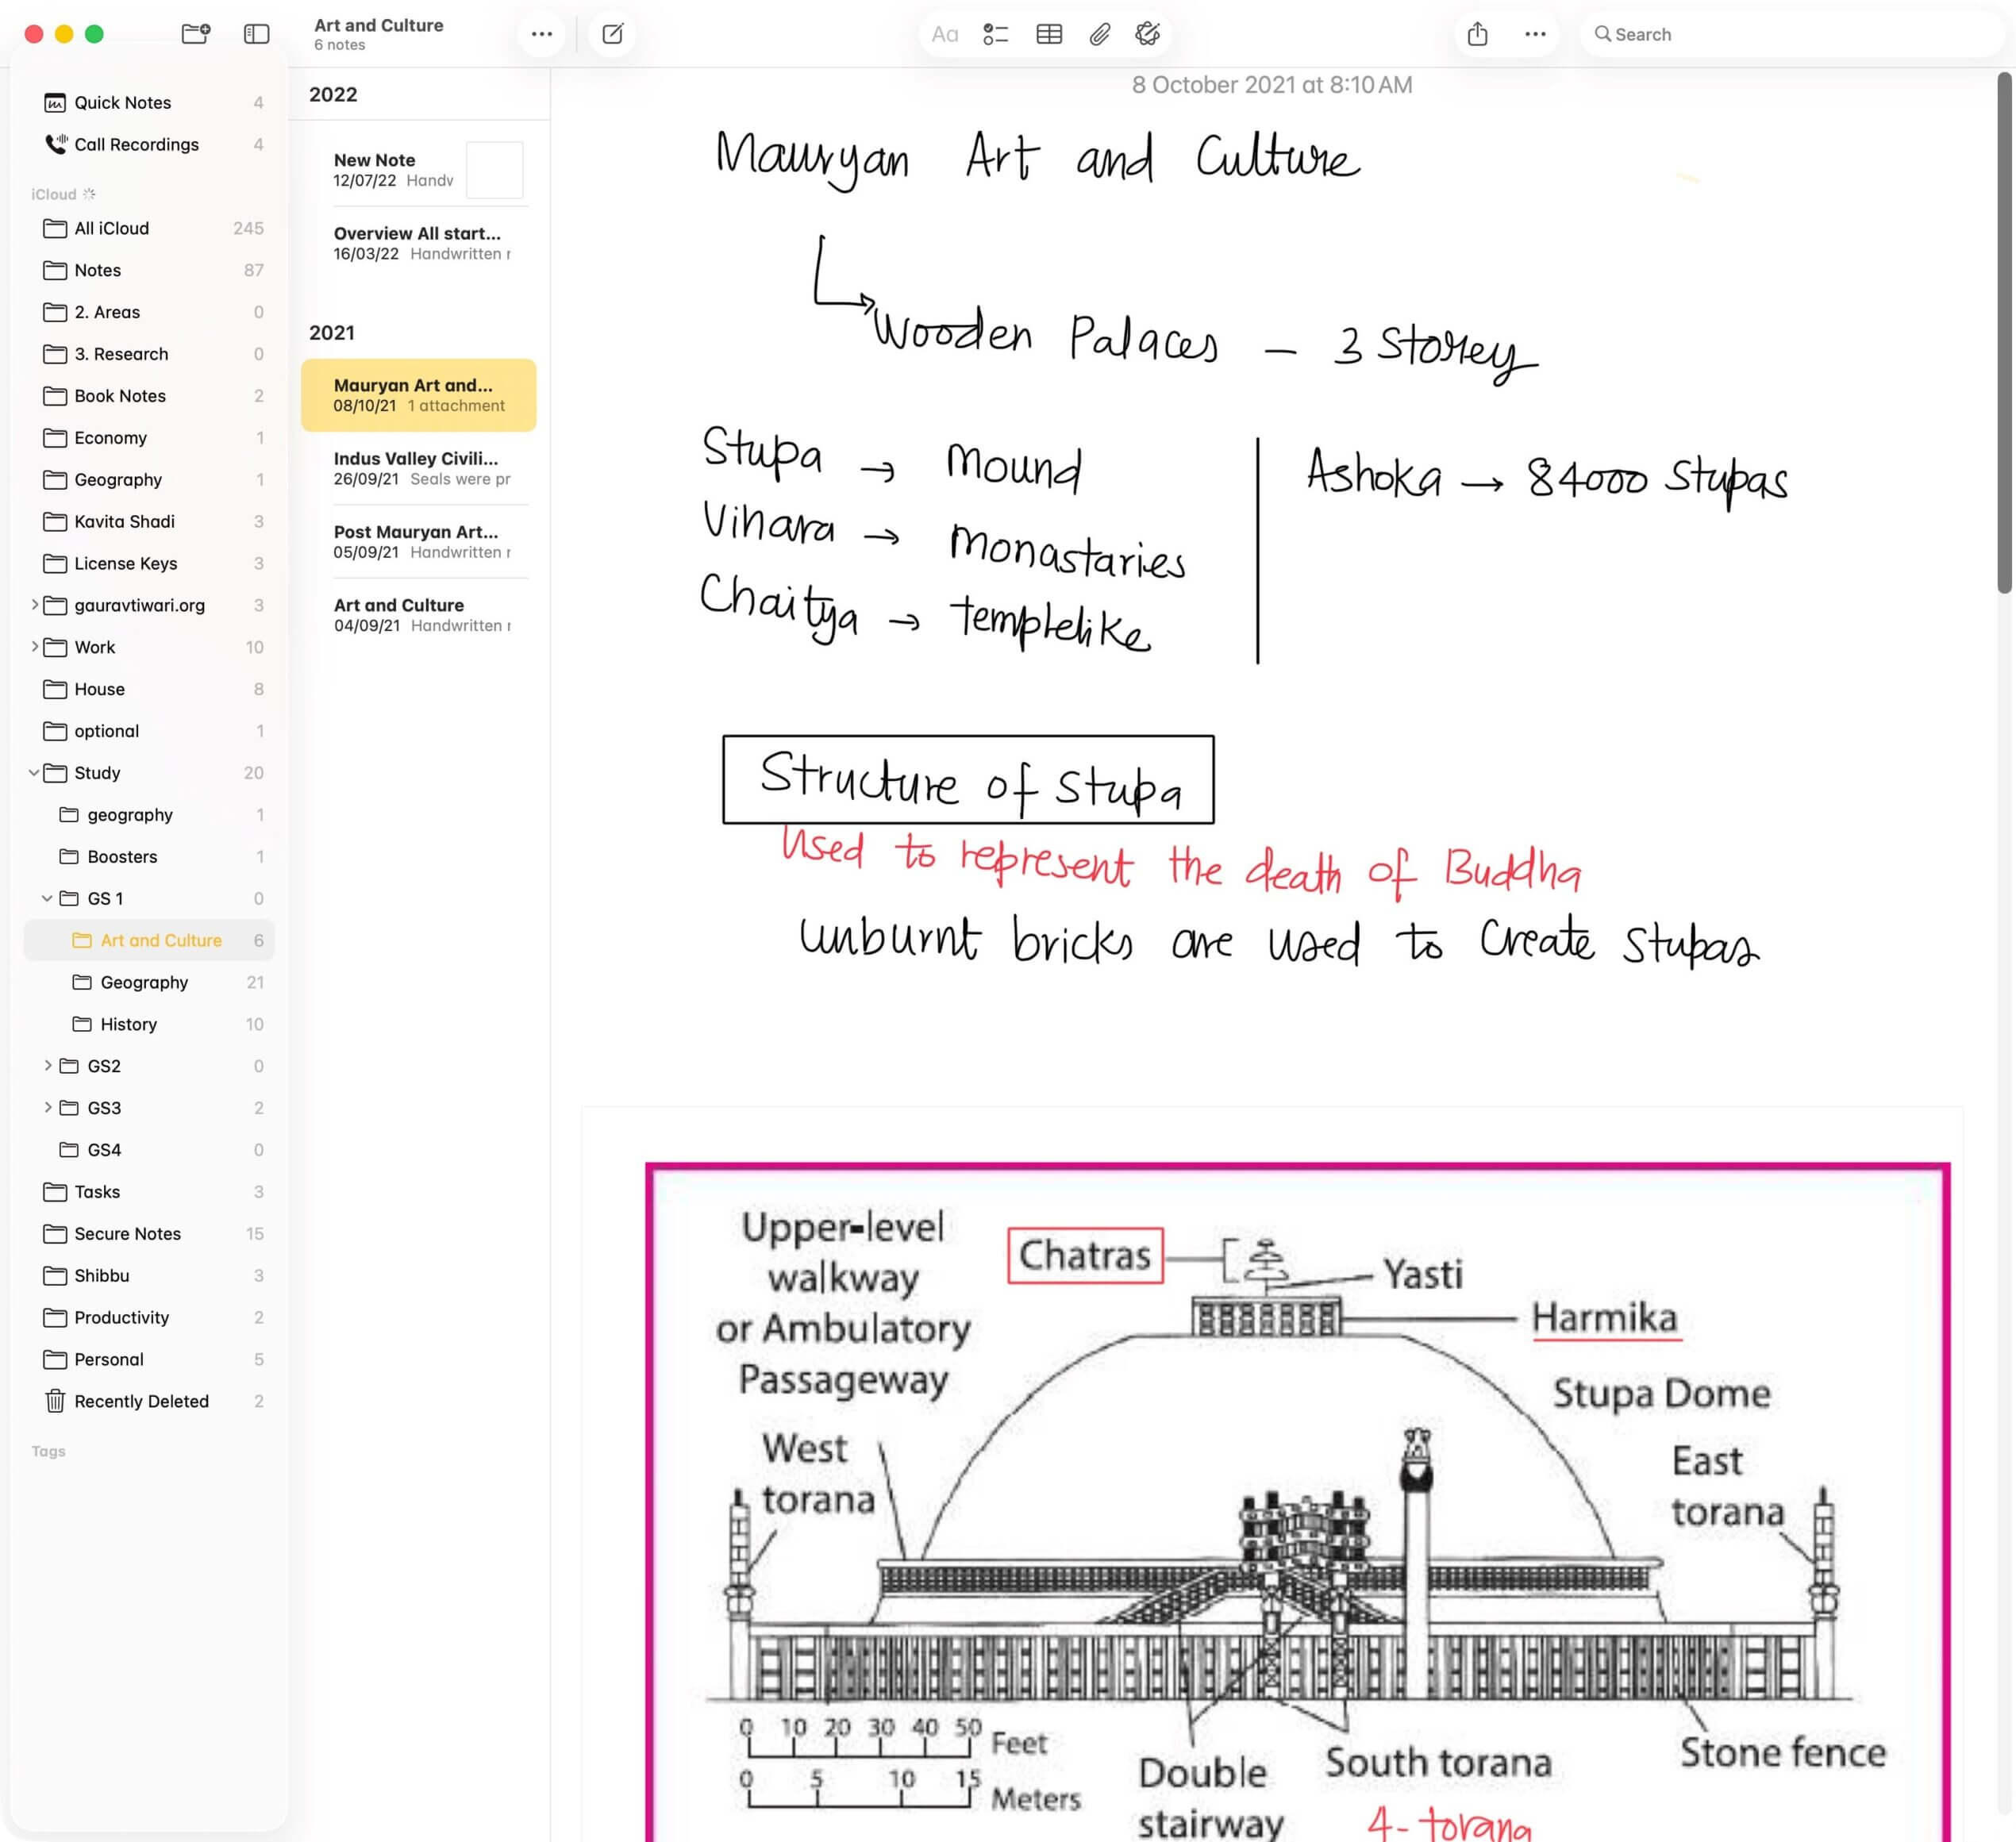 Art and Culture
6 notes
Aa
Search
Quick Notes 4
Call Recordings 4
iCloud
All iCloud 245
Notes 87
2. Areas 0
3. Research 0
Book Notes 2
Economy 1
Geography 1
Kavita Shadi 3
License Keys 3
gauravtiwari.org 3
Work 10
House 8
optional 1
Study 20
geography 1
Boosters 1
GS 1 0
Art and Culture 6
Geography 21
History 10
GS2 0
GS3 2
GS4 0
Tasks 3
Secure Notes 15
Shibbu 3
Productivity 2
Personal 5
Recently Deleted 2
Tags
2022
New Note
12/07/22 Handw
Overview All start...
16/03/22 Handwritten r
2021
Mauryan Art and...
08/10/21 1 attachment
Indus Valley Civili...
26/09/21 Seals were pr
Post Mauryan Art...
05/09/21 Handwritten r
Art and Culture
04/09/21 Handwritten r
8 October 2021 at 8:10 AM
Mauryan Art and Culture
Wooden Palaces – 3 Storey
Stupa → Mound
Vihara → monastaries
Chaitya → templelike
Ashoka → 84000 Stupas
Structure of Stupa
Used to represent the death of Buddha
unburnt bricks are used to create Stupas
Upper-level
walkway
or Ambulatory
Passageway
Chatras
Yasti
Harmika
Stupa Dome
West
torana
East
torana
0 10 20 30 40 50 Feet
0 5 10 15 Meters
Double
stairway
South torana
4- torana
Stone fence